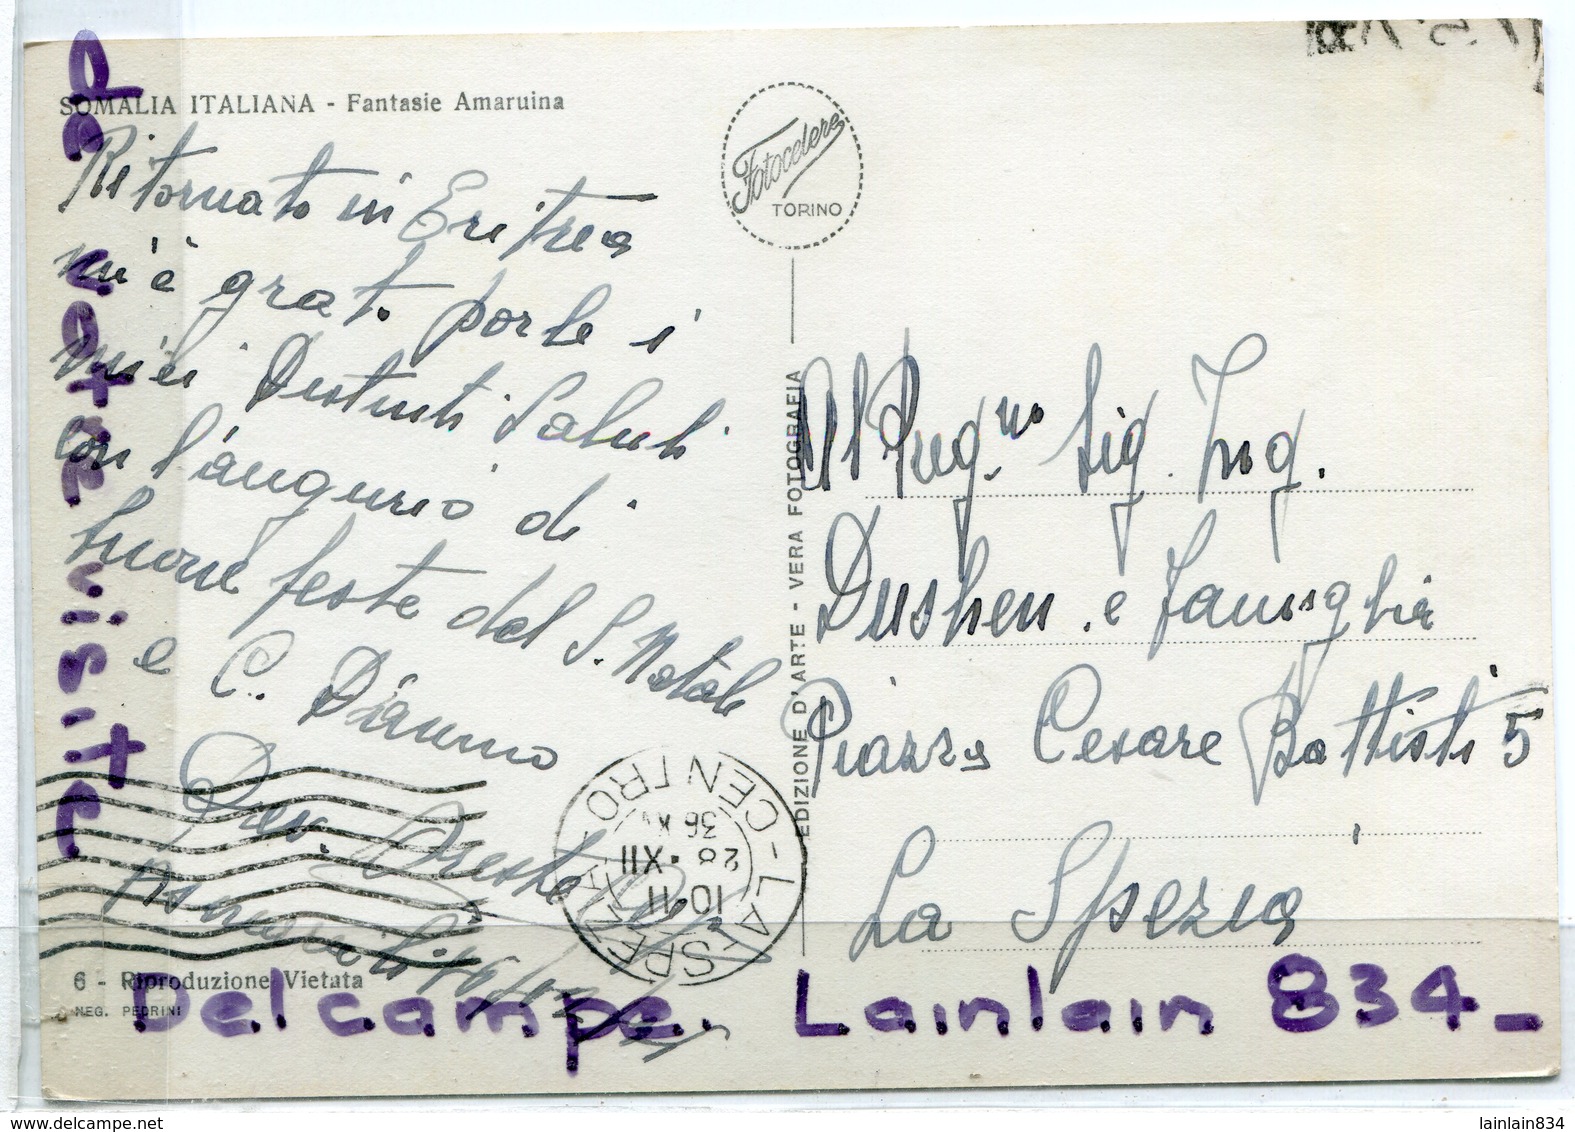 SOMALIA ITALIANA - Fantasie Amaruina
Ritornato in Eritrea
m'è grat. porle i
miei Distinti Saluti
con l'augurio di
buone feste del S. Natale
e C. D'anno
Oreste
Fotocelere
TORINO
EDIZIONE D'ARTE - VERA FOTOGRAFIA
Sig. Ing.
Dushen e Famiglia
Piazza Cesare Battisti 5
La Spezia
LA SPEZIA - CENTRO
10-11
28 XII
36 XV
6 - Riproduzione Vietata
NEG. PEDRINI
de votre visite
Delcampe. Lainlain 834_
lainlain834